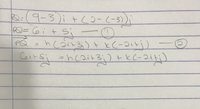 = (9-3)i + (2-(-3))j
= 6i + 5j — ①
= h(2i+3j) + k(-2i+j) — ②
6i+5j = h(2i+3j) + k(-2i+j)